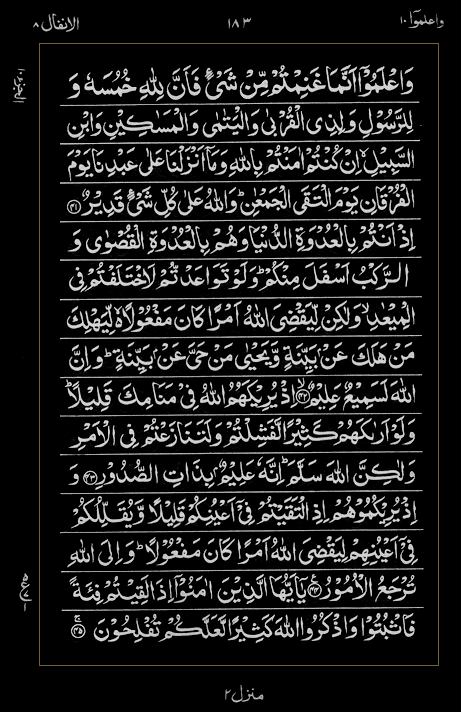 واعلموا ١٠ ١٨٣ الانفال ٨
وَاعْلَمُوْۤا اَنَّمَا غَنِمْتُمْ مِّنْ شَیْءٍ فَاَنَّ لِلّٰهِ خُمُسَهٗ وَ
لِلرَّسُوْلِ وَلِذِی الْقُرْبٰی وَالْیَتٰمٰی وَالْمَسٰكِیْنِ وَابْنِ
السَّبِیْلِ ۙ اِنْ كُنْتُمْ اٰمَنْتُمْ بِاللّٰهِ وَمَاۤ اَنْزَلْنَا عَلٰی عَبْدِنَا یَوْمَ
الْفُرْقَانِ یَوْمَ الْتَقَی الْجَمْعٰنِ ؕ وَاللّٰهُ عَلٰی كُلِّ شَیْءٍ قَدِیْرٌ ﴿۴۱﴾
اِذْ اَنْتُمْ بِالْعُدْوَةِ الدُّنْیَا وَهُمْ بِالْعُدْوَةِ الْقُصْوٰی وَ
الرَّكْبُ اَسْفَلَ مِنْكُمْ ؕ وَلَوْ تَوَاعَدْتُّمْ لَاخْتَلَفْتُمْ فِی
الْمِیْعٰدِ ۙ وَلٰكِنْ لِّیَقْضِیَ اللّٰهُ اَمْرًا كَانَ مَفْعُوْلًا ۙ۬ لِّیَهْلِكَ
مَنْ هَلَكَ عَنْۢ بَیِّنَةٍ وَّیَحْیٰی مَنْ حَیَّ عَنْۢ بَیِّنَةٍ ؕ وَاِنَّ
اللّٰهَ لَسَمِیْعٌ عَلِیْمٌ ﴿۴۲﴾ۙ اِذْ یُرِیْكَهُمُ اللّٰهُ فِیْ مَنَامِكَ قَلِیْلًا ؕ
وَلَوْ اَرٰىكَهُمْ كَثِیْرًا لَّفَشِلْتُمْ وَلَتَنَازَعْتُمْ فِی الْاَمْرِ
وَلٰكِنَّ اللّٰهَ سَلَّمَ ؕ اِنَّهٗ عَلِیْمٌۢ بِذَاتِ الصُّدُوْرِ ﴿۴۳﴾ وَ
اِذْ یُرِیْكُمُوْهُمْ اِذِ الْتَقَیْتُمْ فِیْۤ اَعْیُنِكُمْ قَلِیْلًا وَّیُقَلِّلُكُمْ
فِیْۤ اَعْیُنِهِمْ لِیَقْضِیَ اللّٰهُ اَمْرًا كَانَ مَفْعُوْلًا ؕ وَاِلَی اللّٰهِ
تُرْجَعُ الْاُمُوْرُ ﴿۴۴﴾ یٰۤاَیُّهَا الَّذِیْنَ اٰمَنُوْۤا اِذَا لَقِیْتُمْ فِئَةً
فَاثْبُتُوْا وَاذْكُرُوا اللّٰهَ كَثِیْرًا لَّعَلَّكُمْ تُفْلِحُوْنَ ﴿۴۵﴾ۚ
منزل ٢